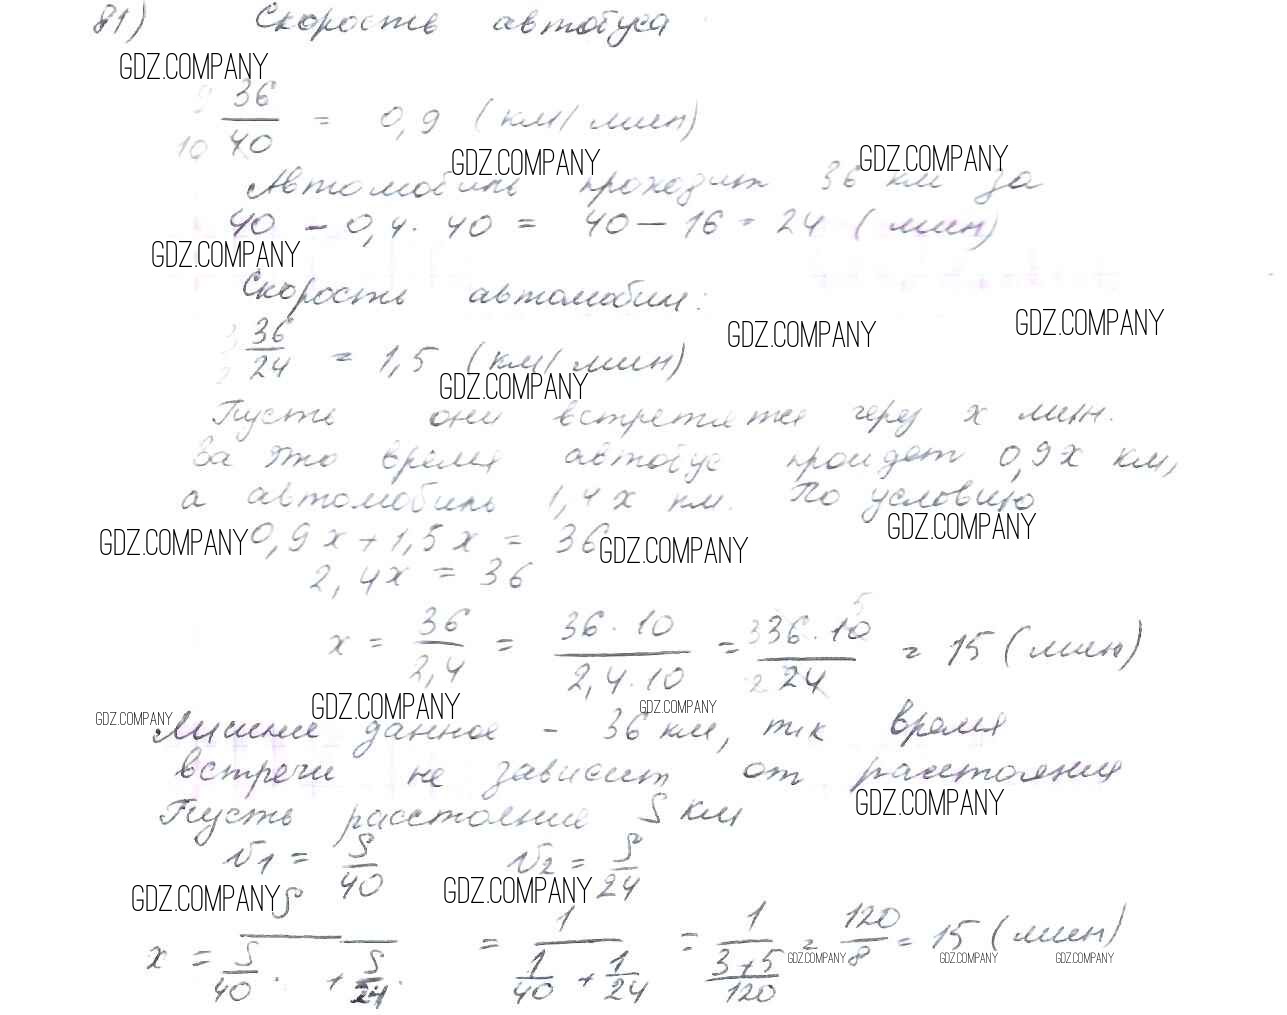 81) Скорость автобуса
GDZ.COMPANY
9 36/40 10 = 0,9 (км/мин)
GDZ.COMPANY GDZ.COMPANY
Автомобиль проходит 36 км за
40 - 0,4 · 40 = 40 - 16 = 24 (мин)
GDZ.COMPANY
Скорость автомобиля:
GDZ.COMPANY GDZ.COMPANY
3 36/24 2 = 1,5 (км/мин)
GDZ.COMPANY
Пусть они встретятся через x мин.
За это время автобус пройдет 0,9x км,
а автомобиль 1,4x км. По условию
GDZ.COMPANY
GDZ.COMPANY 0,9x + 1,5x = 36 GDZ.COMPANY
2,4x = 36
x = 36/2,4 = 36 · 10/2,4 · 10 = 3 36 · 10 5/2 24 = 15 (мин)
GDZ.COMPANY GDZ.COMPANY GDZ.COMPANY
Лишнее данное - 36 км, т.к время
встречи не зависит от расстояния
GDZ.COMPANY
Пусть расстояние S км
v1 = S/40 v2 = S/24
GDZ.COMPANY GDZ.COMPANY
x = S/(S/40 + S/24) = 1/(1/40 + 1/24) = 1/((3+5)/120) = 120/8 = 15 (мин)
GDZ.COMPANY GDZ.COMPANY GDZ.COMPANY